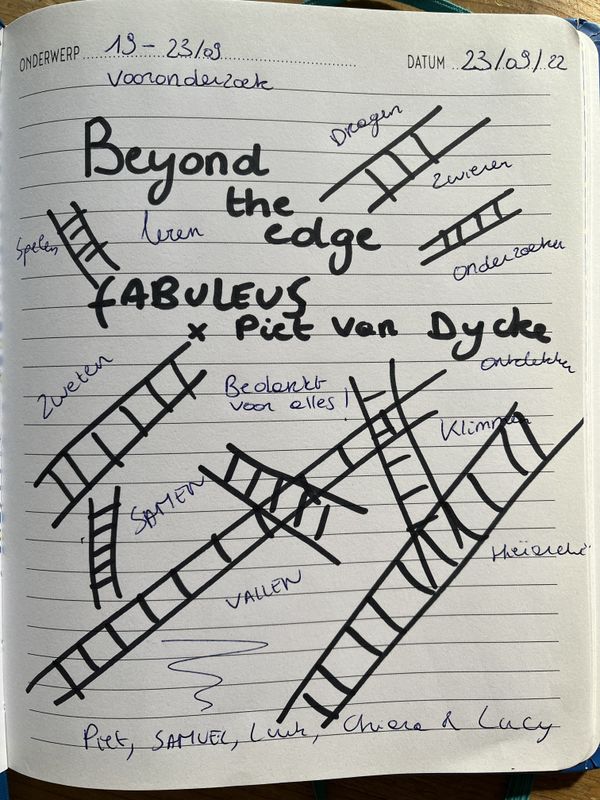 ONDERWERP 19 - 23/09
DATUM 23/09/22
vooronderzoek
Dragen
Beyond
zwieren
the
Spelen
leren
edge
onderzoeken
fABULEUS
x Piet Van Dycke
zweten
ontdekken
Bedankt
voor alles!
Klimmen
SAMEN
VALLEN
Piet, SAMUEL, Luuk, Chiara & Lucy